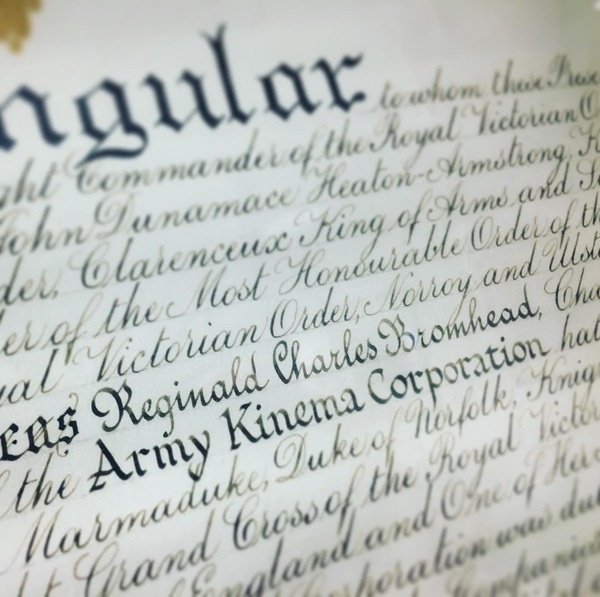 ngular to whom these Prese
ght Commander of the Royal Victorian O
John Dunamace Heaton-Armstrong, K
der, Clarenceux King of Arms and S
er of the Most Honourable Order of th
yal Victorian Order, Norroy and Ulst
eas Reginald Charles Bromhead, Cha
f the Army Kinema Corporation hat
Marmaduke, Duke of Norfolk, Knig
ht Grand Cross of the Royal Victor
England and One of Her
Corporation was dul